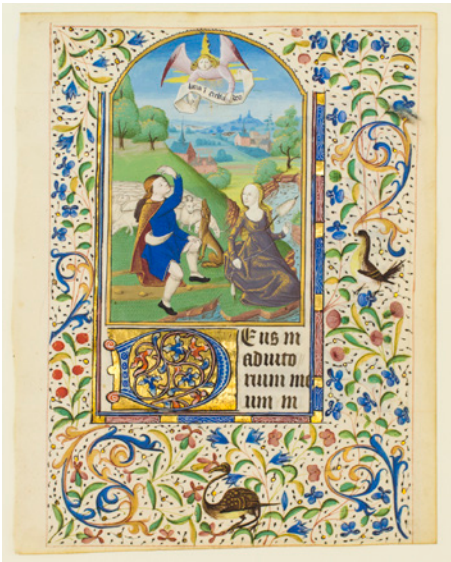 DEus in
adiuto
rium me
um in